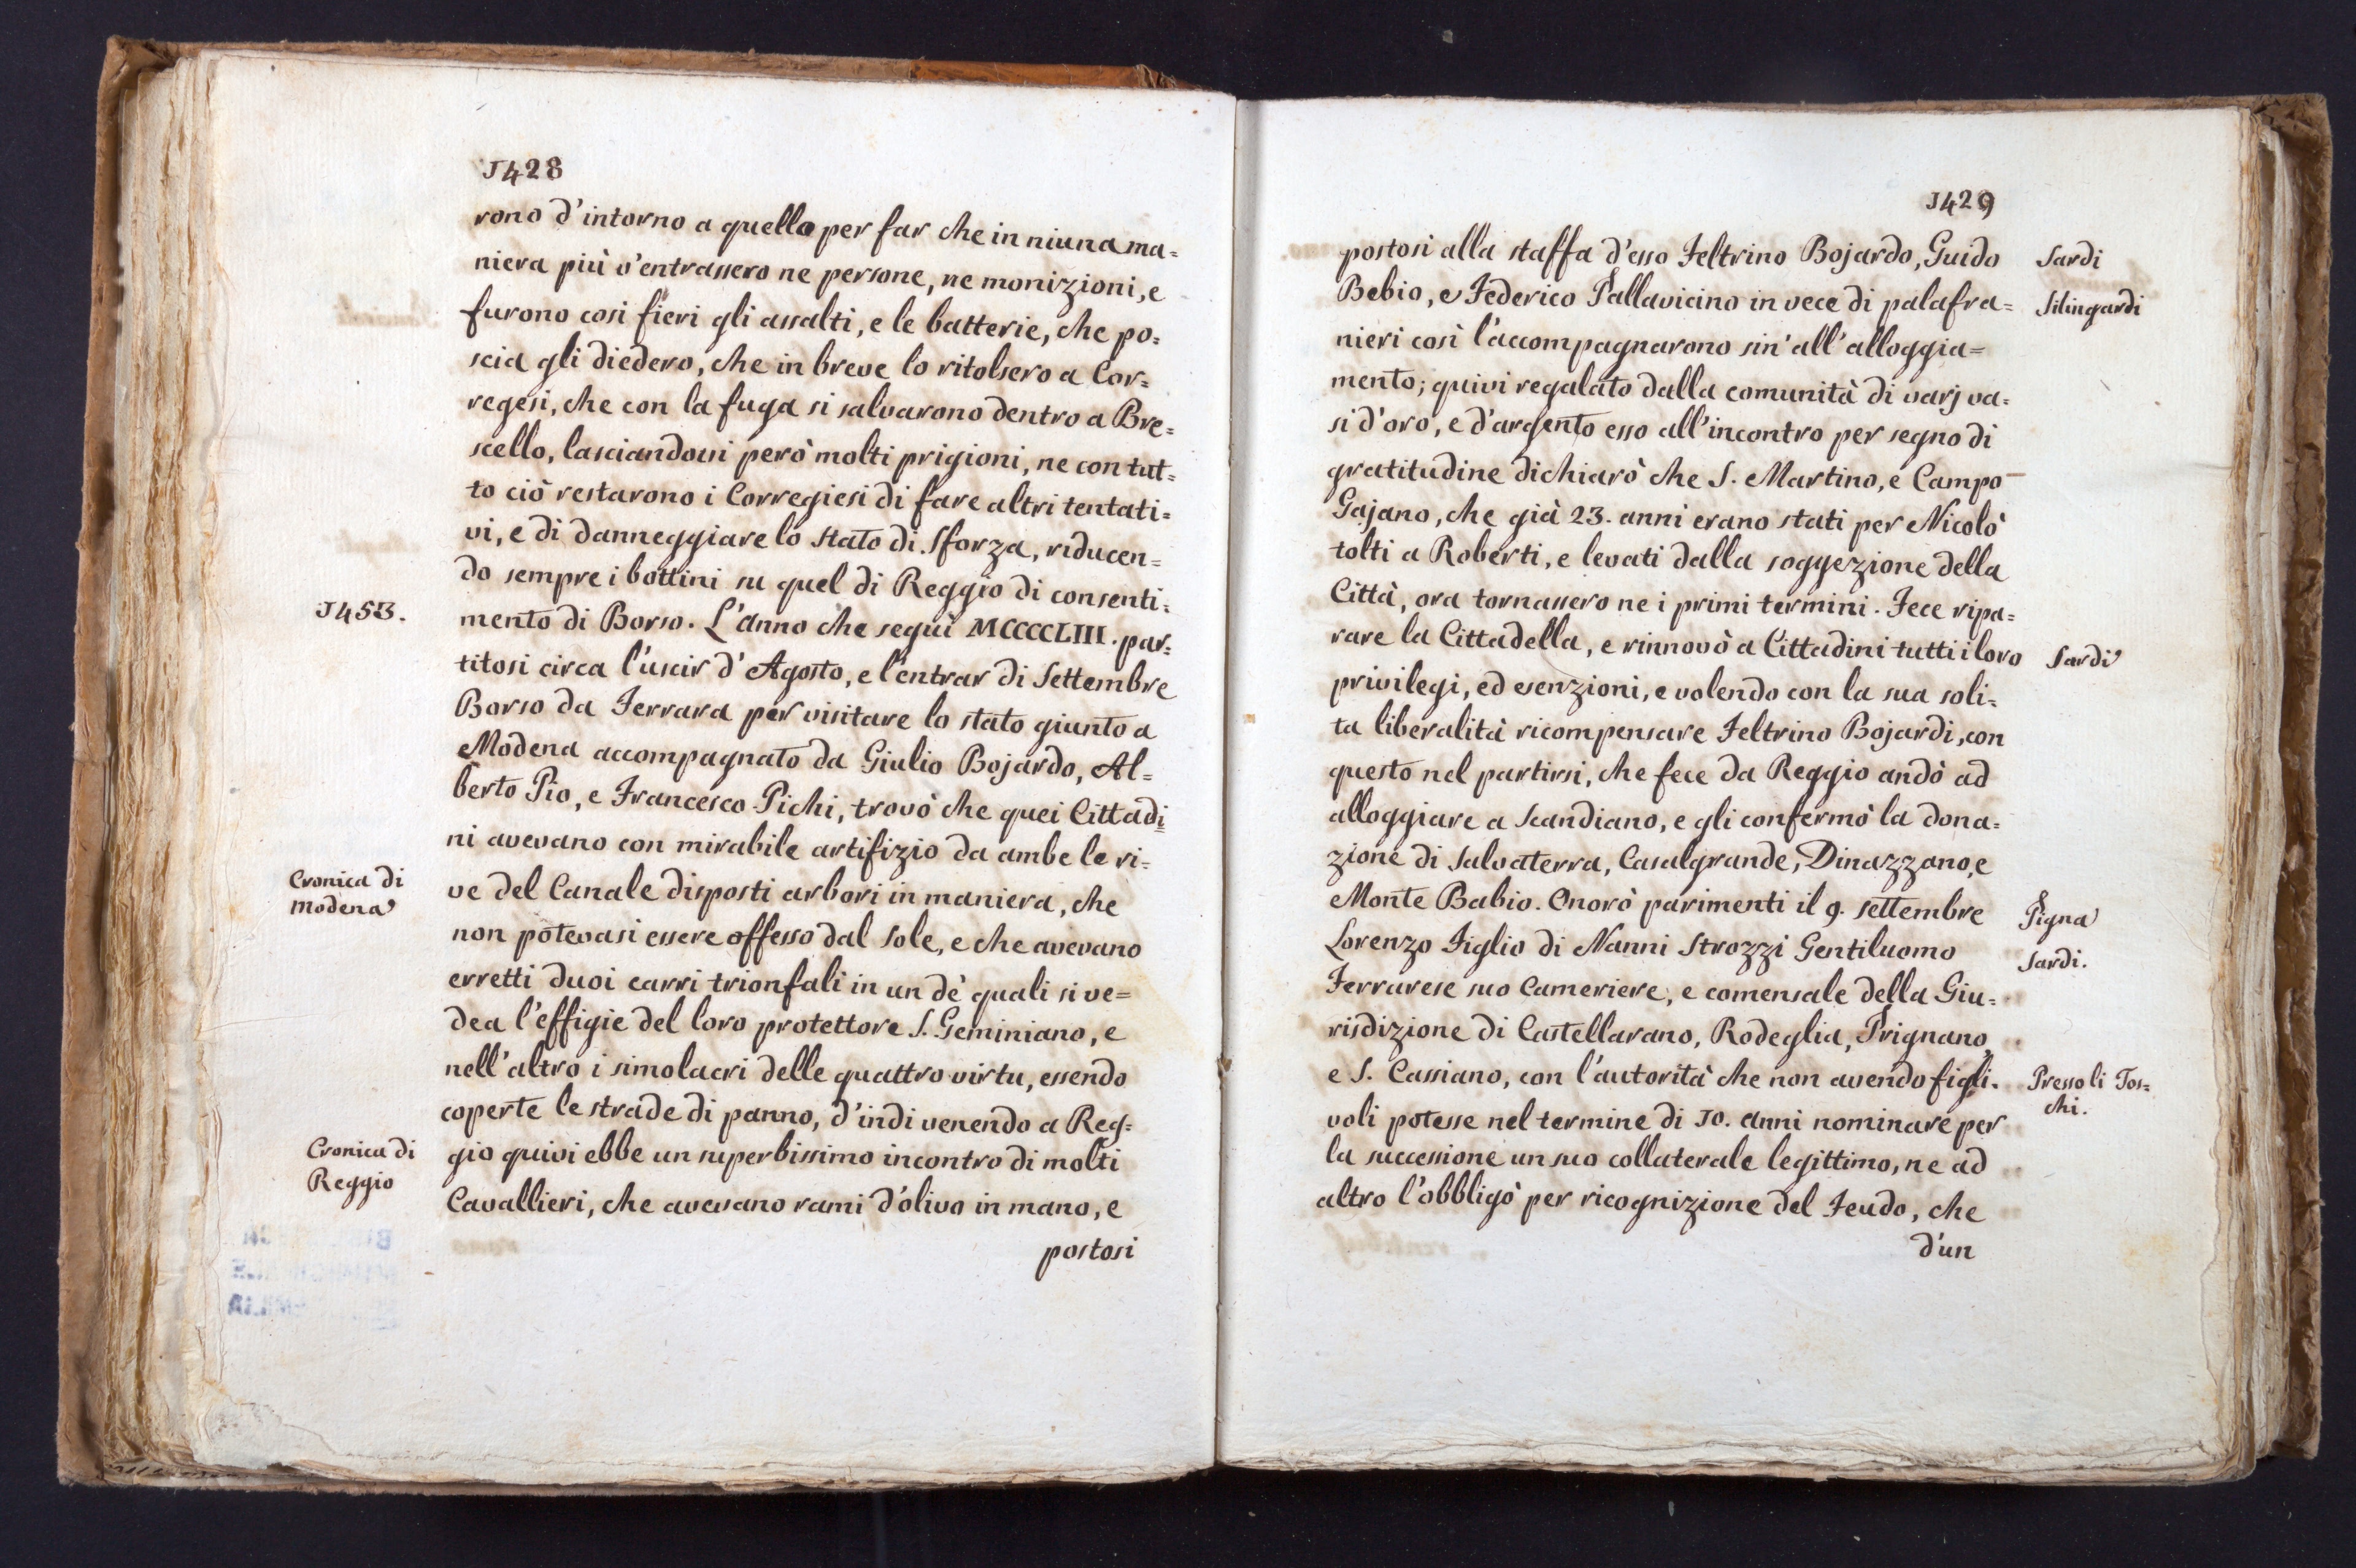 1428
rono d'intorno a quello per far che in niuna ma=
niera più v'entrassero ne persone, ne monizioni, e
furono cosi fieri gli assalti, e le batterie, che po=
scia gli diedero, che in breve lo ritolsero a Cor=
regesi, che con la fuga si salvarono dentro a Bre=
scello, lasciandovi però molti prigioni, ne con tut=
to ciò restarono i Corregiesi di fare altri tentati=
vi, e di danneggiare lo stato di Sforza, riducen=
do sempre i bottini su quel di Reggio di consenti=
1453.
mento di Borso. L'anno che seguì MCCCCLIII. par=
titosi circa l'uscir d'Agosto, e l'entrar di Settembre
Borso da Ferrara per visitare lo stato giunto a
Modena accompagnato da Giulio Bojardo, Al=
berto Pio, e Francesco Pichi, trovò che quei Cittadi=
ni avevano con mirabile artifizio da ambe le ri=
Cronica di
Modena
ve del Canale disposti arbori in maniera, che
non potevasi essere offesso dal Sole, e che avevano
erretti duoi carri trionfali in un de' quali si ve=
dea l'effigie del loro protettore S. Geminiano, e
nell'altro i simolacri delle quattro virtu, essendo
coperte le strade di panno, d'indi venendo a Reg=
Cronica di
Reggio
gio quivi ebbe un superbissimo incontro di molti
Cavallieri, che avevano rami d'olivo in mano, e
postosi
1429
postosi alla staffa d'esso Feltrino Bojardo, Guido
Sardi
Bebio, e Federico Pallavicino in vece di palafra=
Silingardi
nieri così l'accompagnarono sin'all'alloggia=
mento; quivi regalato dalla comunità di varj va=
si d'oro, e d'argento esso all'incontro per segno di
gratitudine dichiarò che S. Martino, e Campo
Gajano, che già 23. anni erano stati per Nicolò
tolti a Roberti, e levati dalla soggezione della
Città, ora tornassero ne i primi termini. Fece ripa=
rare la Cittadella, e rinnovò a Cittadini tutti i loro
Sardi
privilegi, ed esenzioni, e volendo con la sua soli=
ta liberalità ricompensare Feltrino Bojardi, con
questo nel partirsi, che fece da Reggio andò ad
alloggiare a Scandiano, e gli confermò la dona=
zione di Salvaterra, Casalgrande, Dinazzano, e
Monte Babio. Onorò parimenti il 9. Settembre
Pigna
Lorenzo Figlio di Nanni Strozzi Gentiluomo
Sardi.
Ferrarese suo Cameriere, e comensale della Giu=
risdizione di Castellarano, Rodeglia, Prignano,
e S. Cassiano, con l'autorità che non avendo figli=
Presso li Tos=
chi.
voli potesse nel termine di 10. anni nominare per
la successione un suo collaterale legittimo, ne ad
altro l'obbligò per ricognizione del Feudo, che
d'un